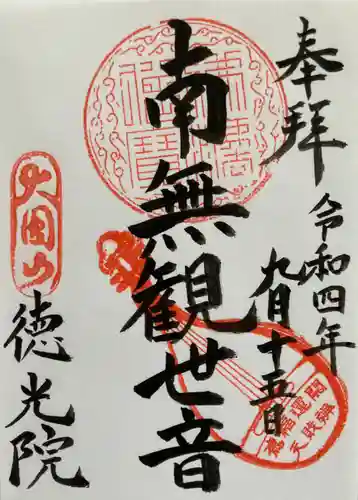 奉拝
令和四年
九月十五日
南無観世音
徳光院
大円山
開運招福